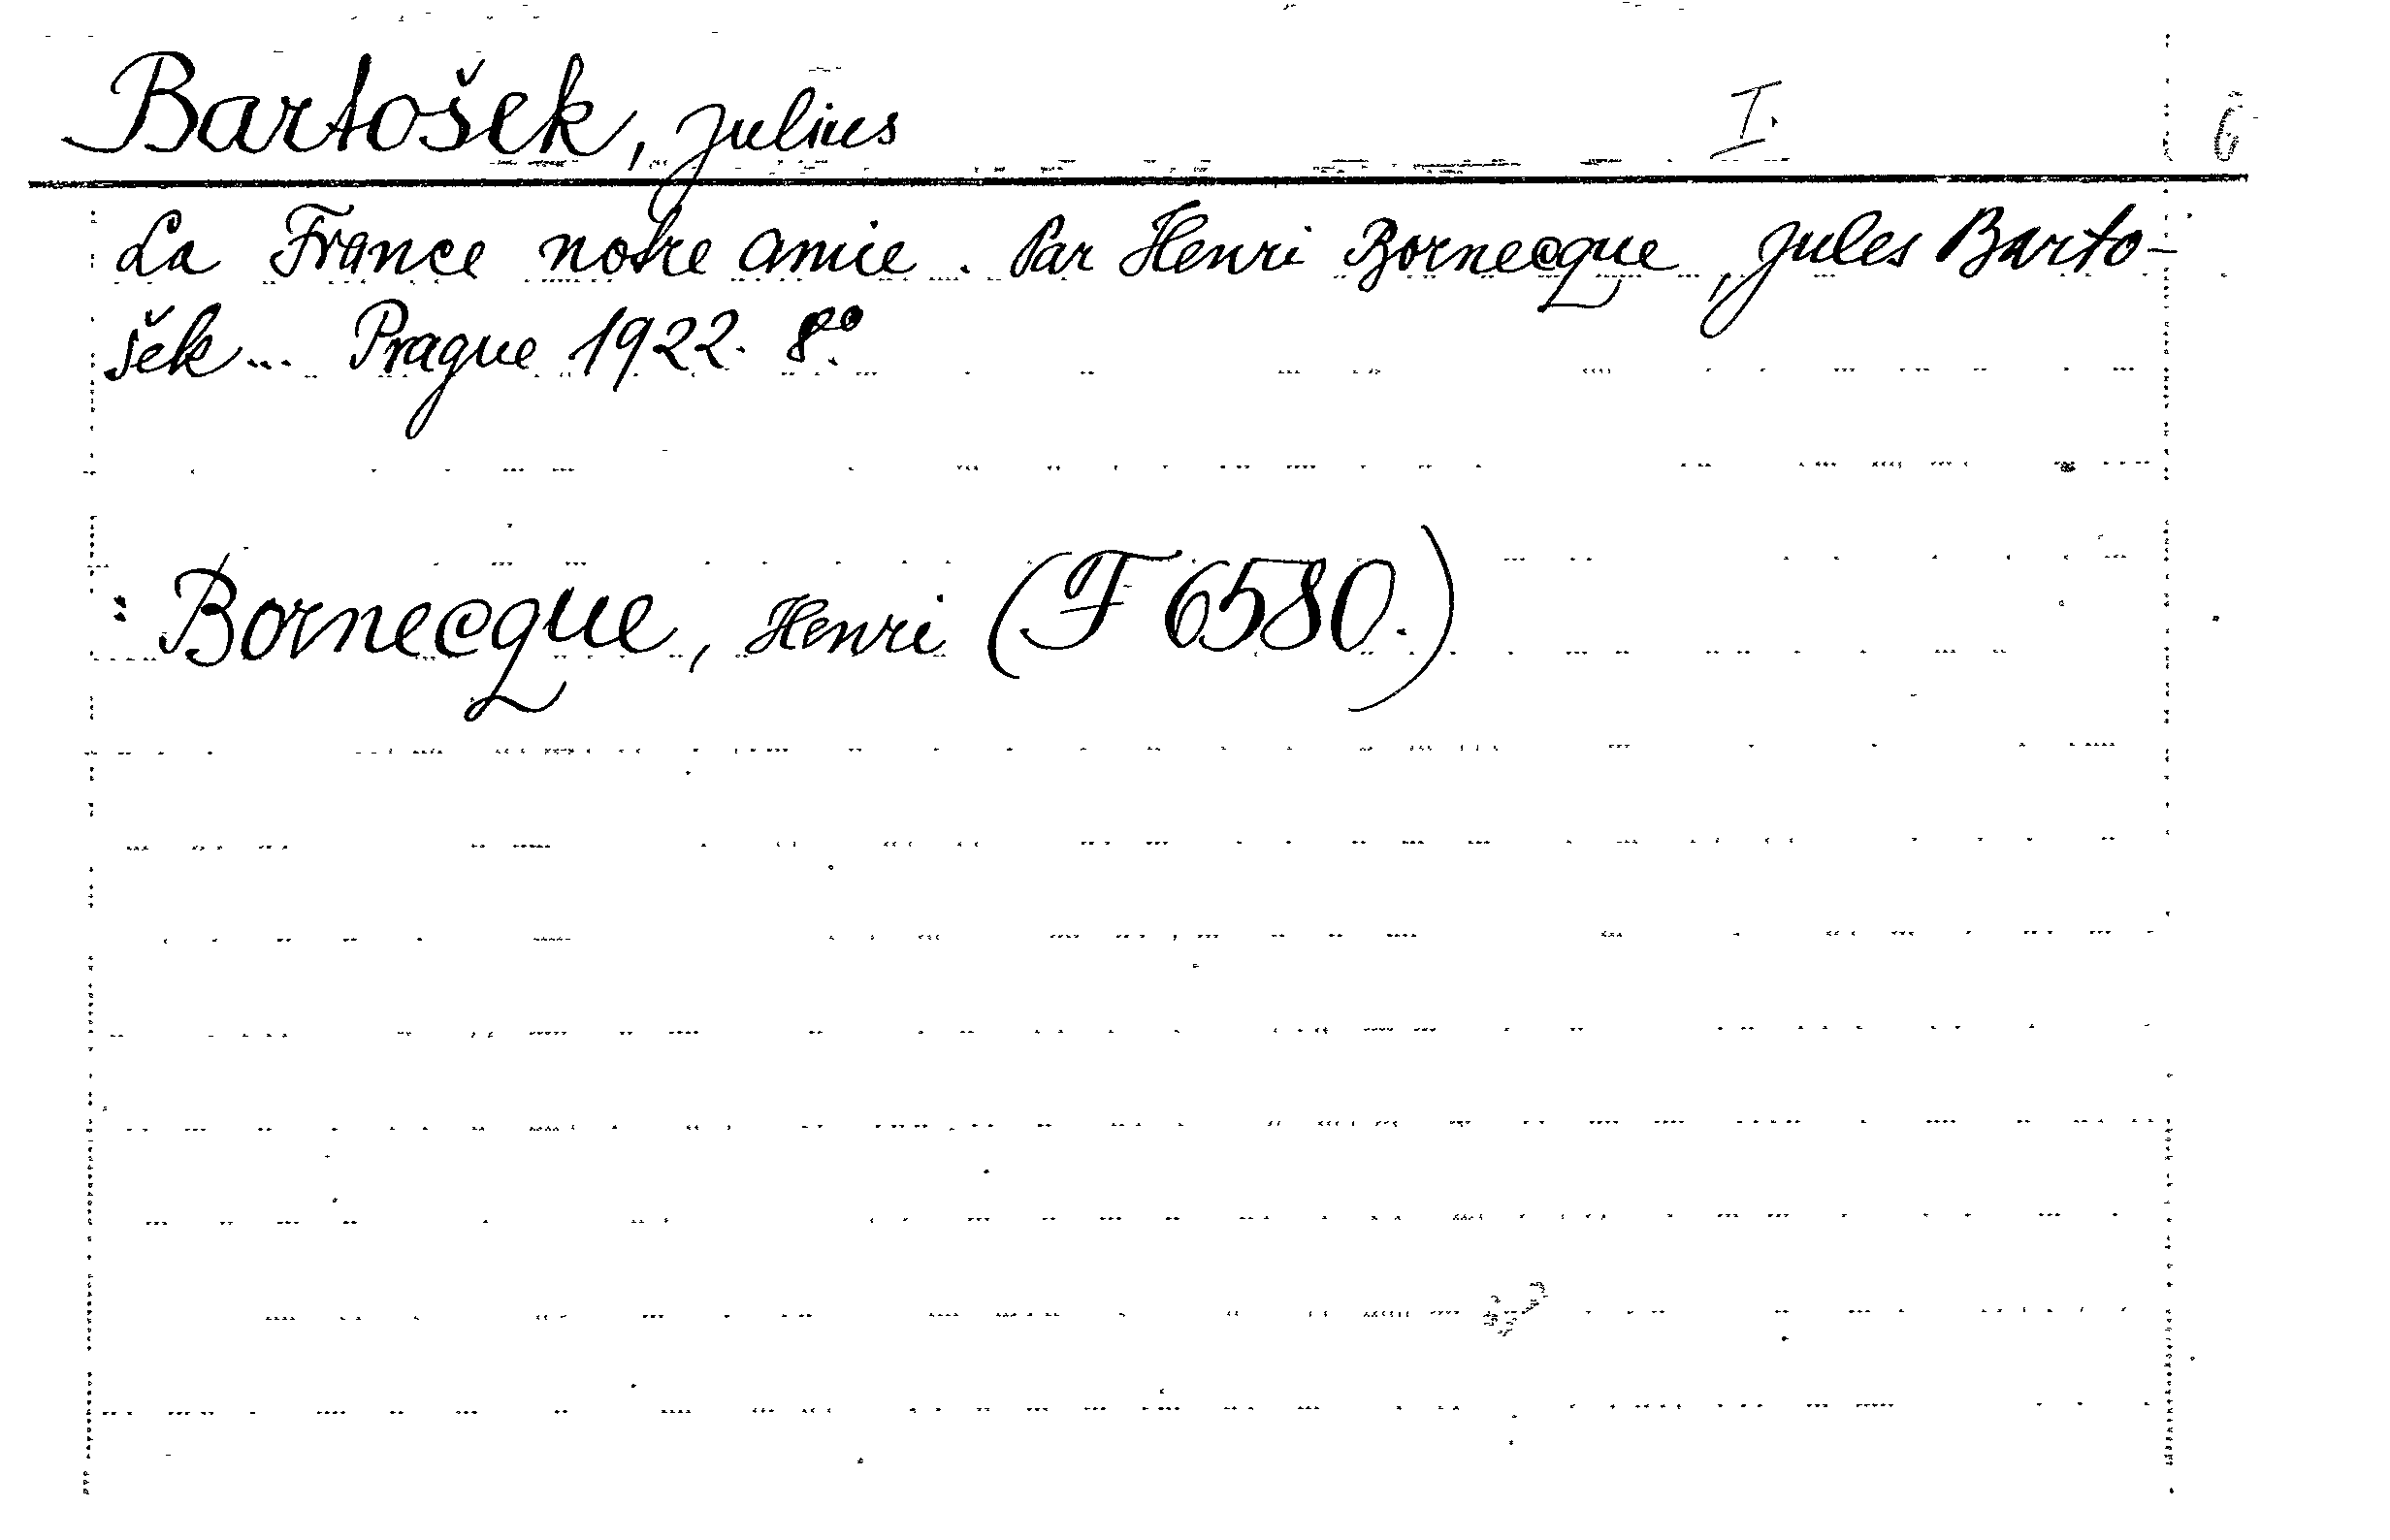 Bartošek, Julius I. 6
La France notre amie. Par Henri Bornecque, Jules Barto-
šek... Prague 1922. 8°.
: Bornecque, Henri (F 6580.)